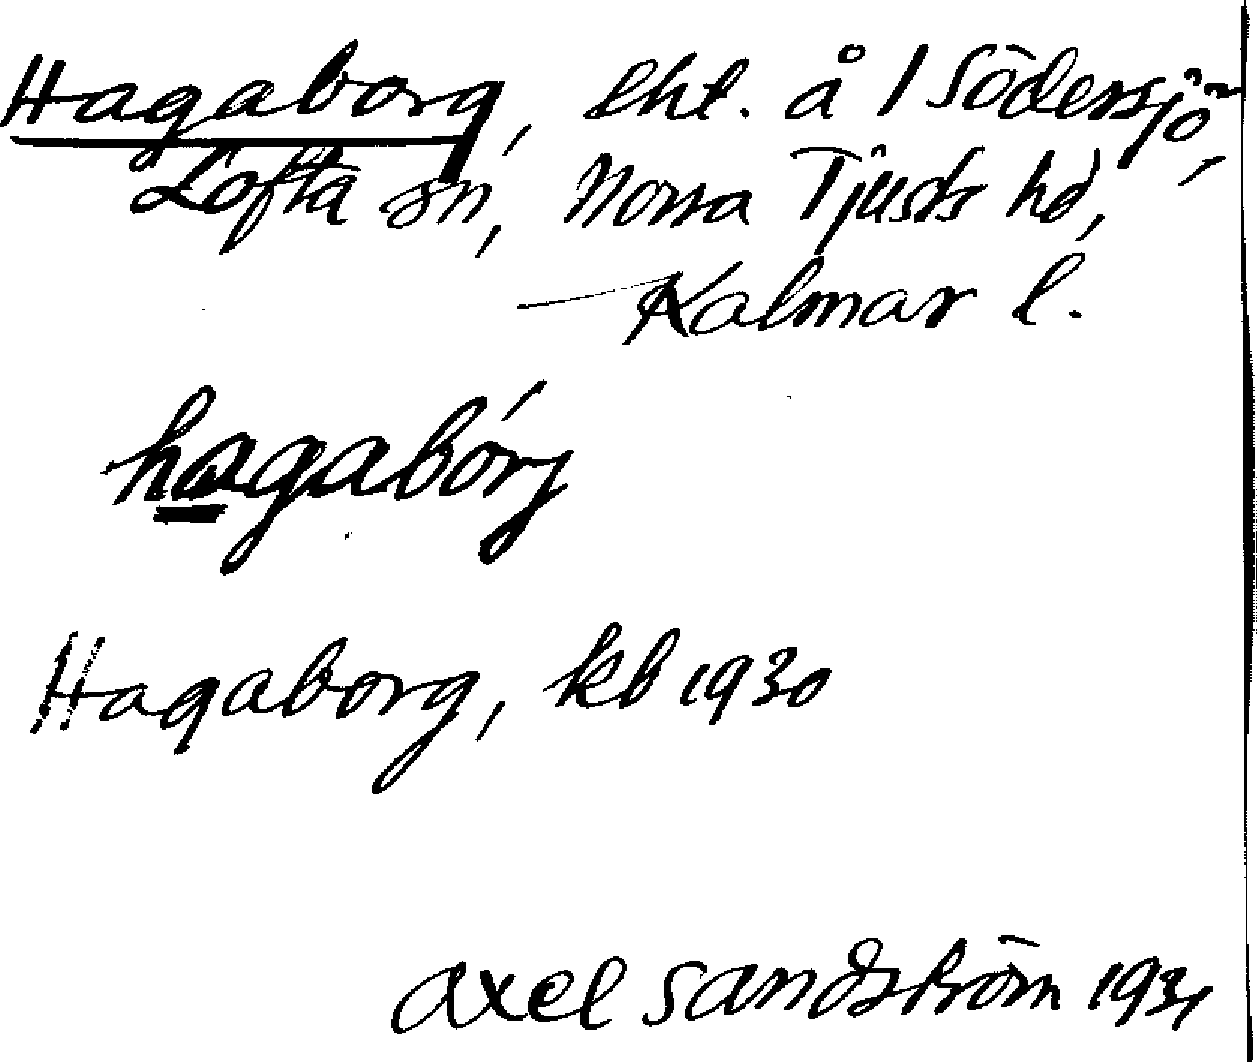 Hagaborg, lht. å 1 Södersjö,
Lofta sn, Norra Tjusts hd,
Kalmar l.
hagabórj
Hagaborg, kb 1930
Axel Sandström 1931